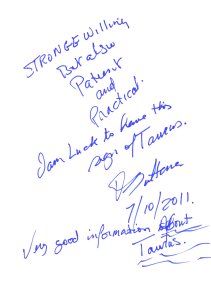 STRONGE Willing
But also
Patient
and
Practical.
I am Luck to have this
sign of Taurus.
7/10/2011.
Very good information about
Taurus.